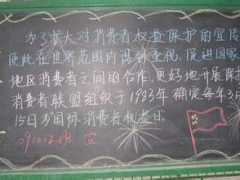 为了扩大对消费者权益保护的宣传
使此在世界范围内得到重视,促进国家
地区消费者之间的合作,更好地开展保护
消费者联盟组织于1983年确定每年3月
15日为国际消费者权益日